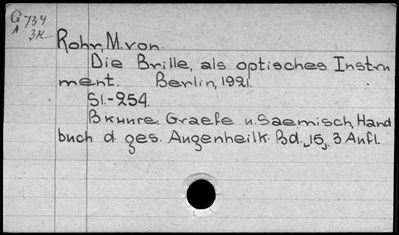 G 734
A 3K
Rohr, M. von.
Die Brille, als optisches Instru
ment. Berlin, 1921.
SI.-254.
Вкниге: Graefe u. Saemisch, Hand
buch d. ges. Augenheilk. Bd. „15„ 3 Aufl.